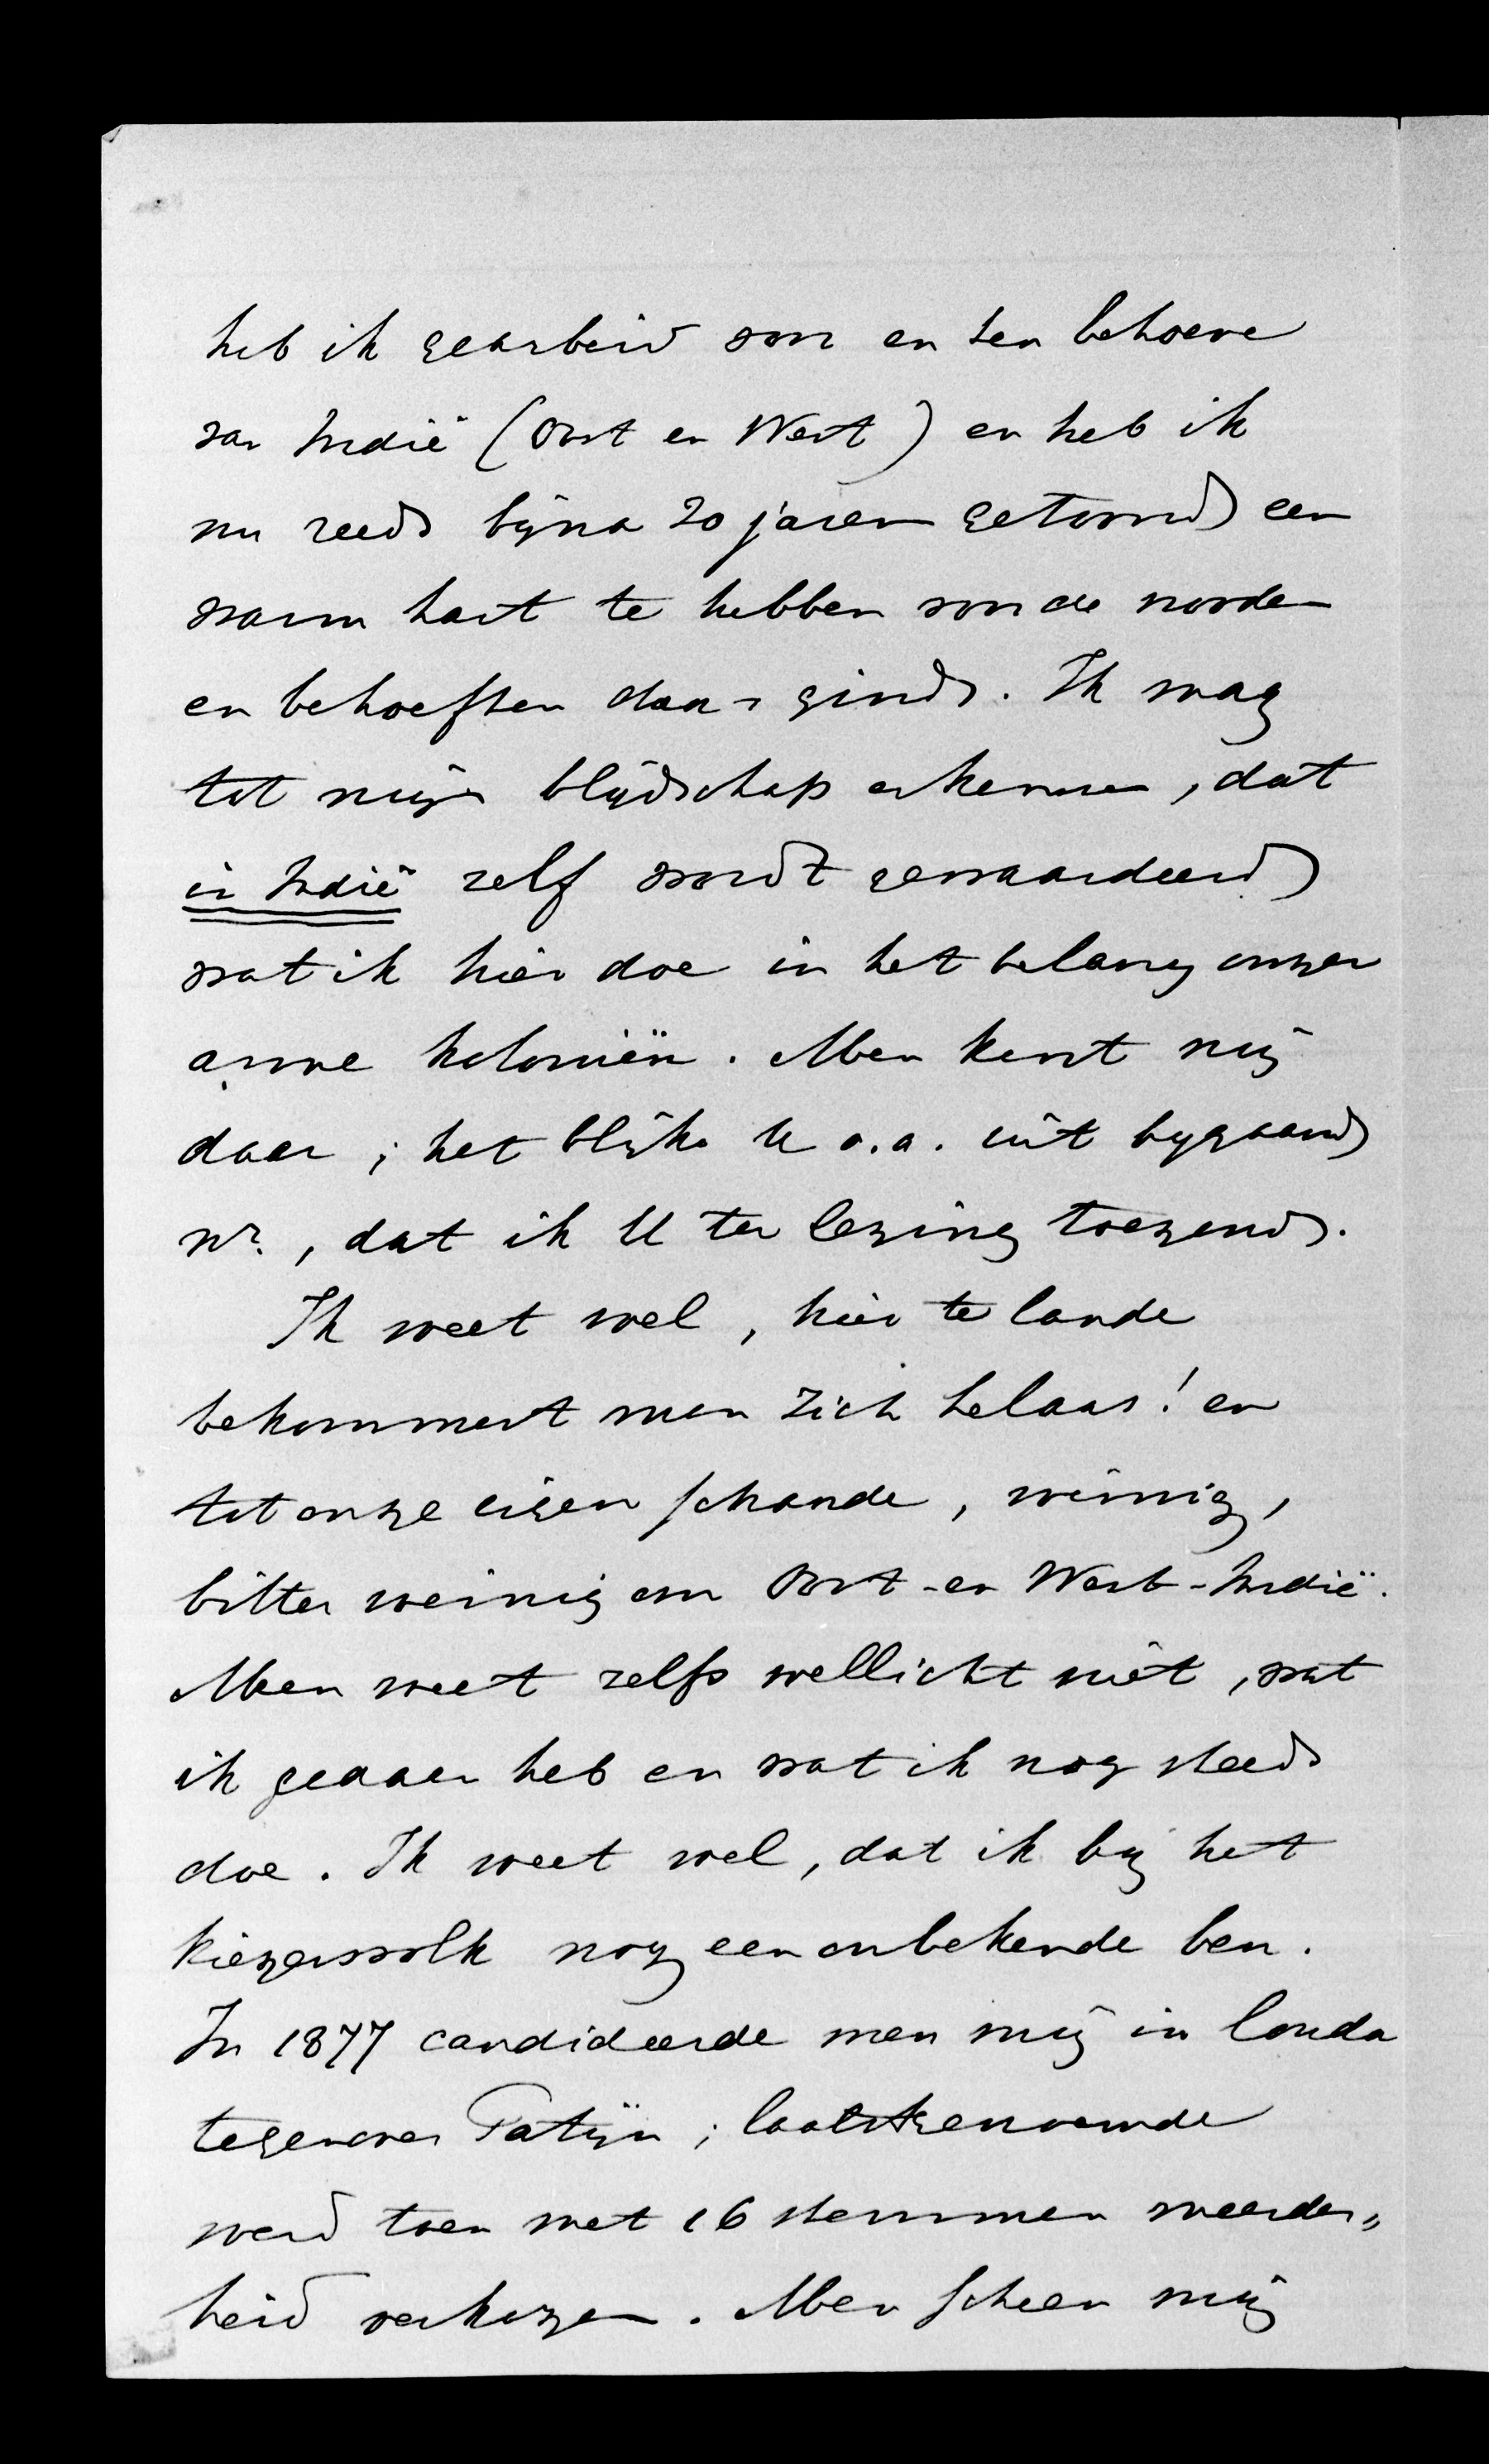 heb ik gearbeid voor en ten behoeve
van Indië (Oost en West) en heb ik
nu reeds bijna 20 jaren getoond een
warm hart te hebben voor de noden
en behoeften daar ginds. Ik mag
tot mijn blijdschap erkennen, dat
in Indië zelf wordt gewaardeerd
wat ik hier doe in het belang onzer
arme koloniën. Men kent mij
daar; het blijke U o.a. uit bijgaand
nr., dat ik U ter lezing toezend.
Ik weet wel, hier te lande
bekommert men zich helaas! en
tot onze eigen schande, weinig,
bitter weinig om Oost- en West-Indië.
Men weet zelfs wellicht niet, wat
ik gedaan heb en wat ik nog steeds
doe. Ik weet wel, dat ik bij het
kiezersvolk nog een onbekende ben.
In 1877 candideerde men mij in Gouda
tegenover Patijn; laatstgenoemde
werd toen met 16 stemmen meerder„
heid verkozen. Men scheen mij